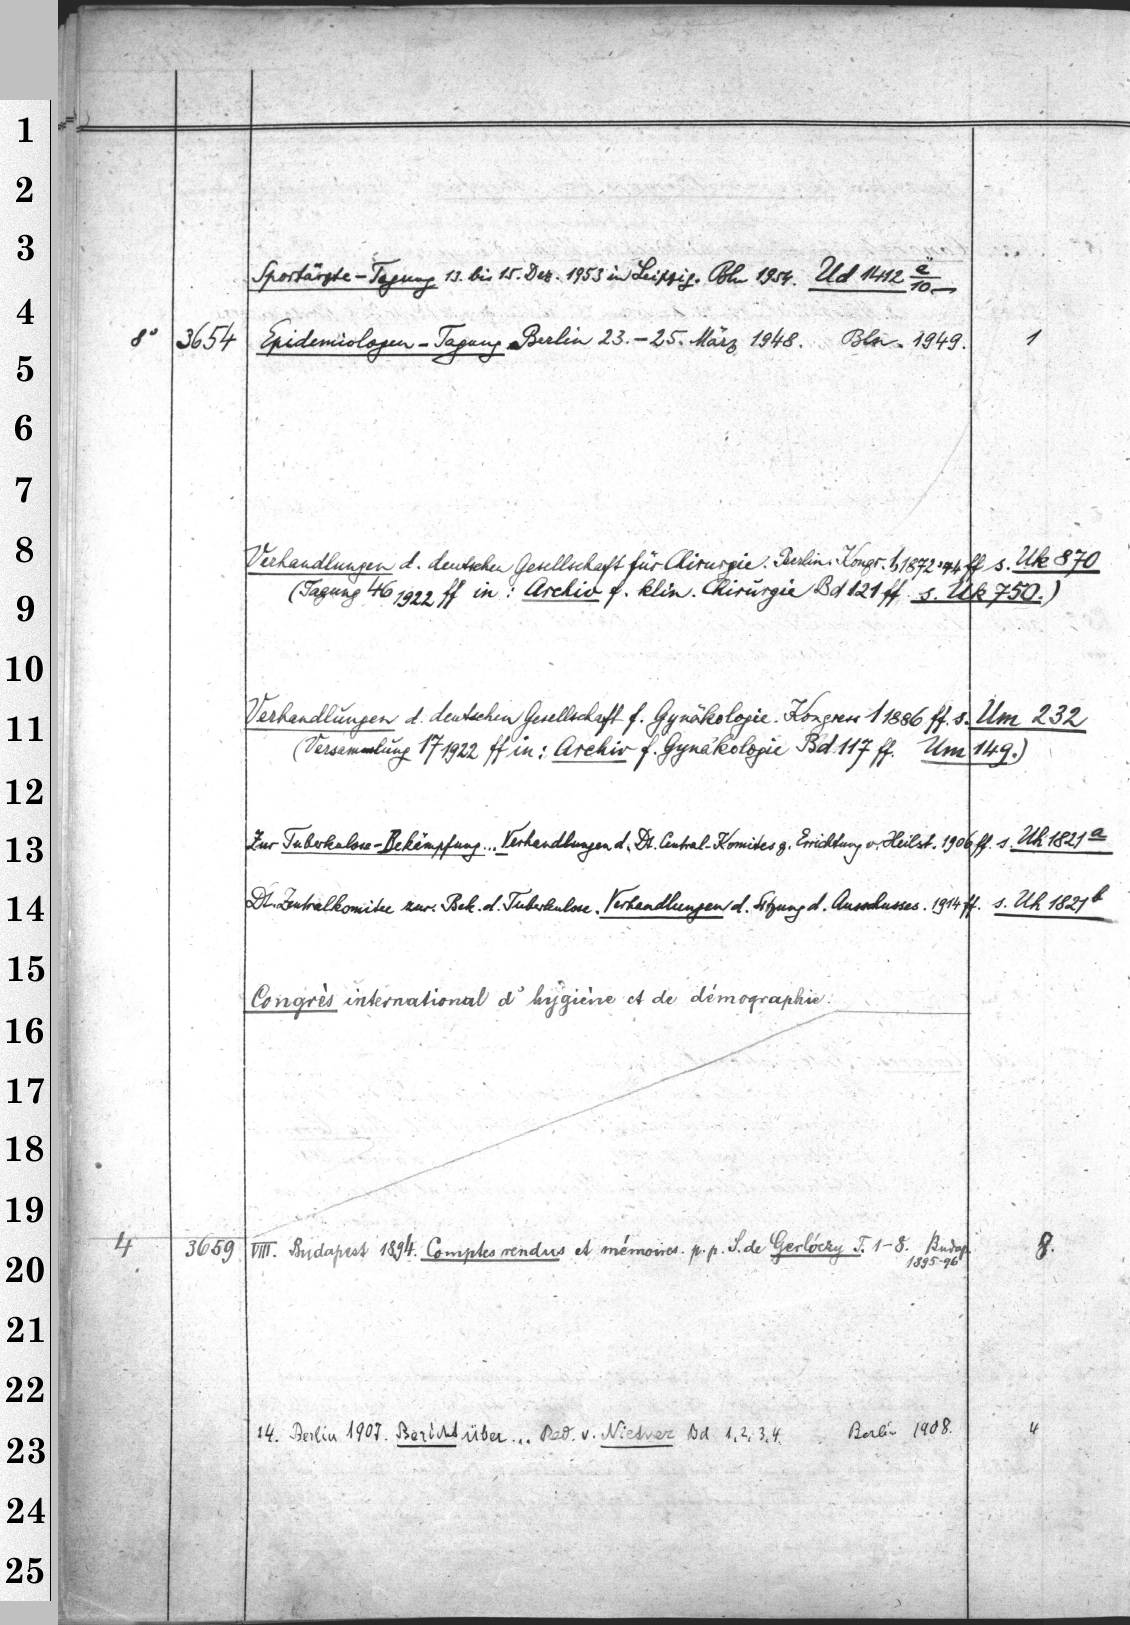 1
2
3
Sportärzte-Tagung 13. bis 15. Dez. 1953 in Leipzig. Bln 1954. Ud 1412 ä/10
4
8° 3654 Epidemiologen-Tagung Berlin 23.-25. März 1948. Bln. 1949. 1
5
6
7
8
Verhandlungen d. deutschen Gesellschaft für Chirurgie. Berlin. Kongr. 1, 1872.74 ff s. Uk 870
(Tagung 46 1922 ff in: Archiv f. klin. Chirurgie Bd 121 ff s. Uk 750.)
9
10
Verhandlungen d. deutschen Gesellschaft f. Gynäkologie. Kongress 1 1886 ff. s. Um 232
11
(Versammlung 17 1922 ff in: Archiv f. Gynäkologie Bd. 117 ff. Um 149.)
12
Zur Tuberkulose-Bekämpfung... Verhandlungen d. Dt. Central-Komites z. Errichtung v. Heilst. 1906 ff. s. Uh 1821 a
13
Dt. Zentralkomitee zur Bek. d. Tuberkulose. Verhandlungen d. Sitzung d. Ausschusses. 1914 ff. s. Uh 1821 b
14
15
Congrès international d'hygiène et de démographie.
16
17
18
19
4 3659 VIII. Budapest 1894. Comptes rendus et mémoires. p. p. S. de Gerlóczy T. 1-8. Budap. 1895-96 8.
20
21
22
14. Berlin 1907. Bericht über... Red. v. Nietner Bd 1, 2, 3, 4. Berlin 1908. 4
23
24
25